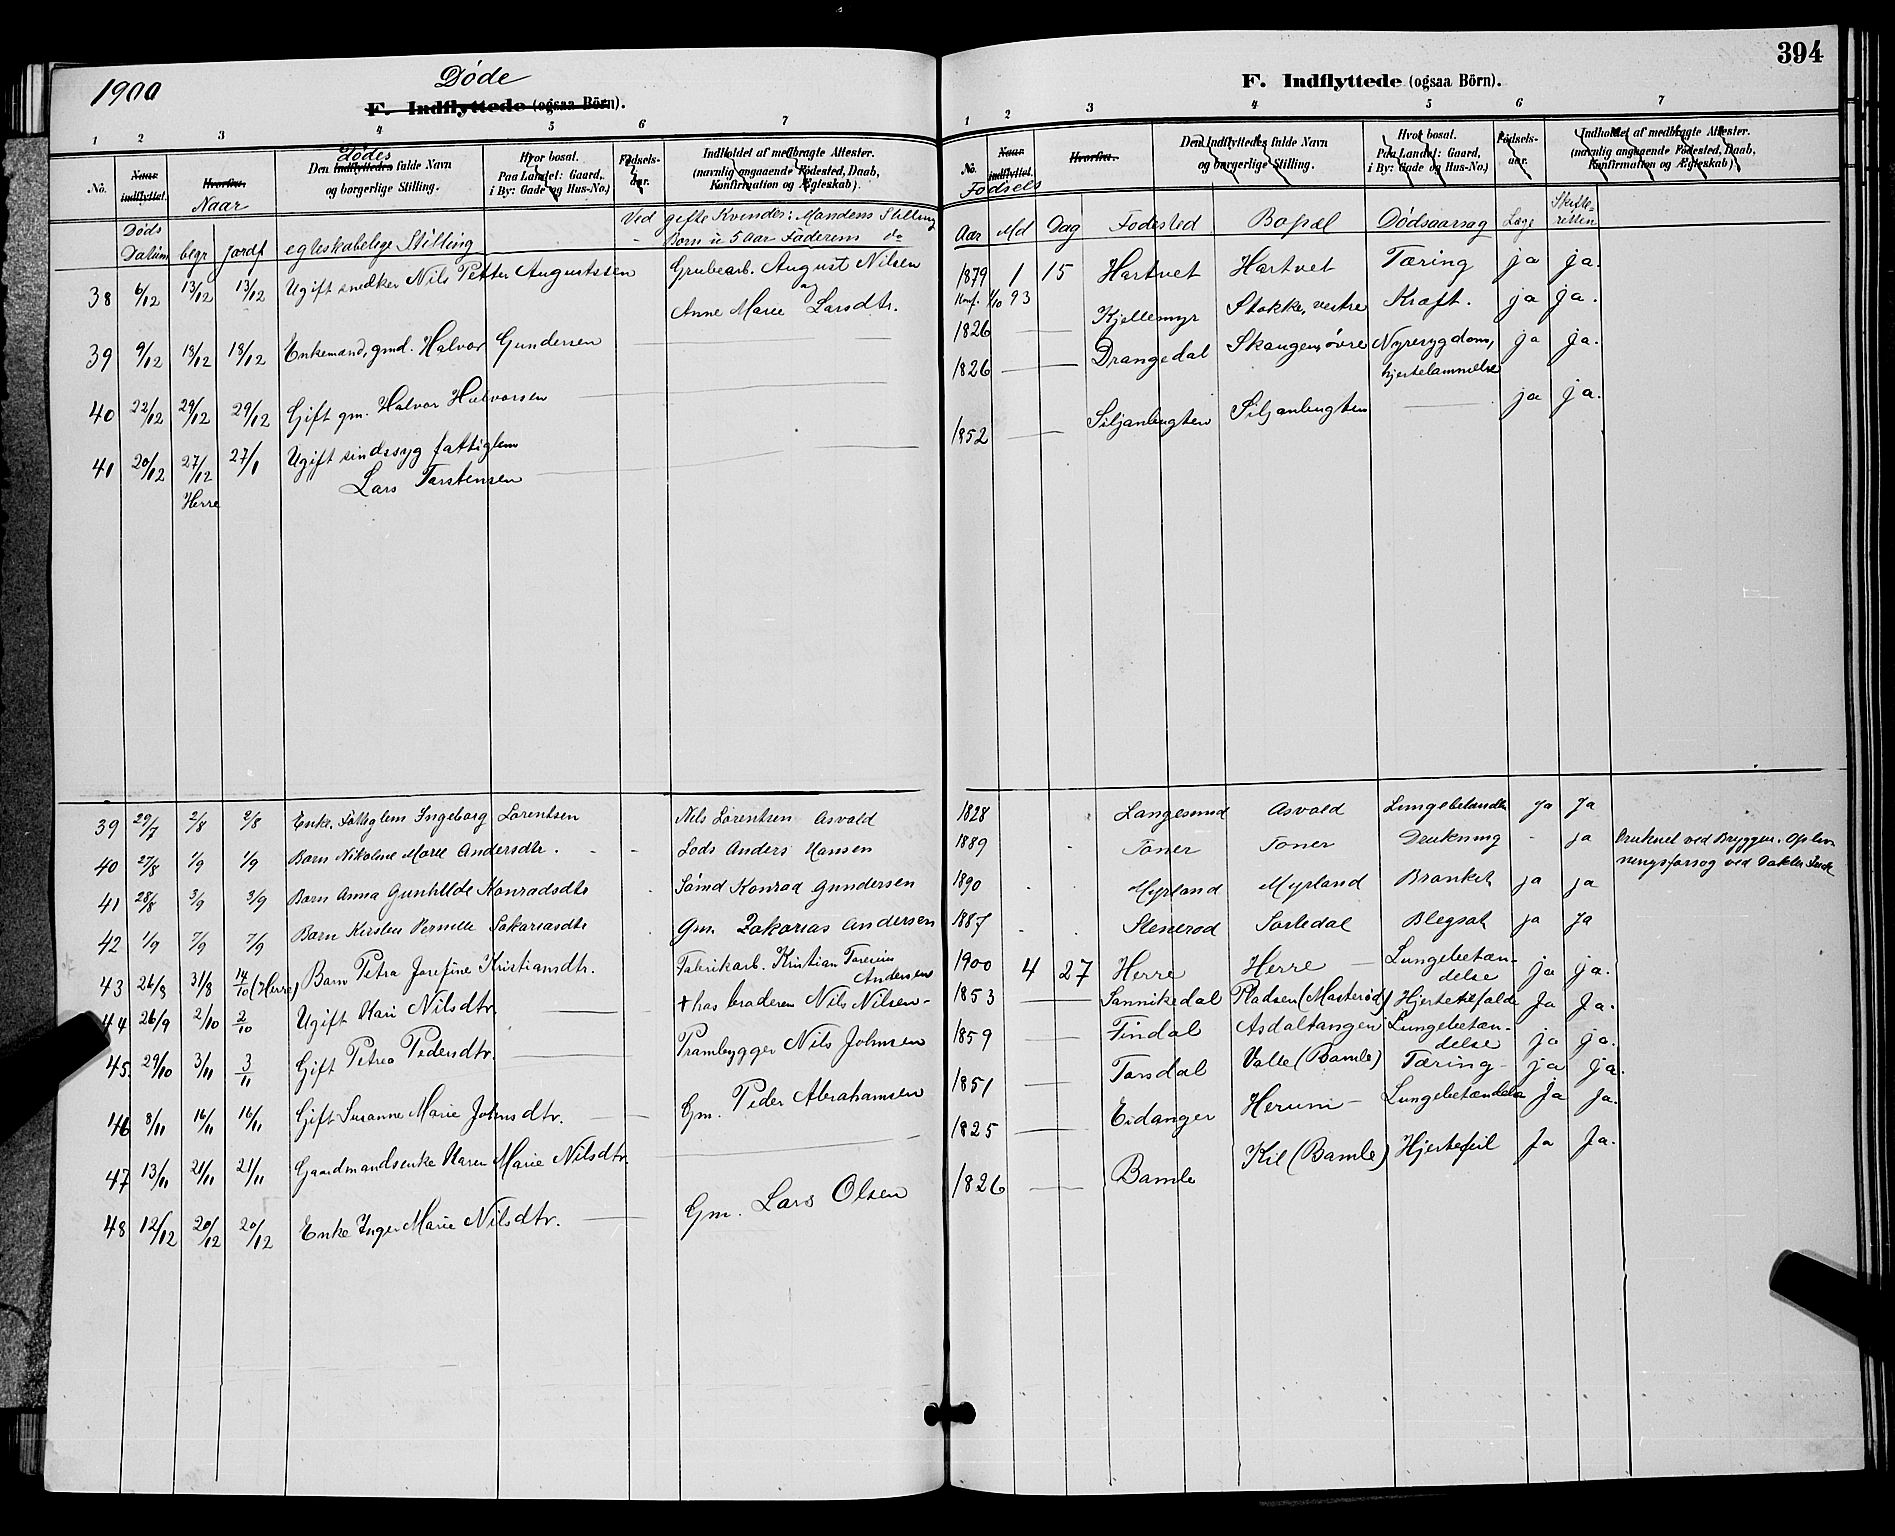 394
1900
Døde
F. Indflyttede (ogsaa Börn).
1 2 3 4 5 6 7
No. Naar indflyttet. Hvorfra. Den Indflyttedes fulde Navn og borgerlige Stilling. Hvor bosat. Paa Landet: Gaard, i By: Gade og Hus-No.) Fødsels-aar. Indholdet af medbragte Attester. (navnlig angaaende Födested, Daab, Konfirmation og Ægteskab)
Dødes
Naar
Døds Datum begr jordf egteskabelige Stilling Ved gifte Kvinder: Mandens Stilling
- Børn u 5 Aar Faderens do
38 6/12 13/12 13/12 Ugift snedker Nils Petter Augustssen Grubearb. August Nilsen
og
Anne Marie Larsdtr.
39 9/12 13/12 13/12 Enkemand, gmd. Halvor Gundersen
40 22/12 29/12 29/12 Gift gm. Halvor Halvorsen
41 20/12 27/12 27/1 Ugift sindssyg fattiglem
Herre Lars Torstensen
39 29/7 2/8 2/8 Enke. Fattiglem Ingeborg Lorentsen Nils Lorentsen Asvald
40 27/8 1/9 1/9 Barn Nikoline Marie Andersdtr. - - Lods Anders Hansen
41 28/8 3/9 3/9 Barn Anna Gunhilde Konradsdtr - Sömd Konrad Gundersen
42 1/9 7/9 7/9 Barn Kirsten Pernille Sakariasdtr - Gm. Zakarias Andersen
43 26/8 31/8 14/10 (Herre) Barn Petra Josefine Kristiansdtr. Fabrikarb. Kristian
Andersen
44 26/9 2/10 2/10 Ugift Kari Nilsdtr. + hos broderen Nils Nilsen -
45. 29/10 3/11 3/11 Gift Petrea Pedersdtr. Prambygger Nils Johnsen
46 8/11 16/11 16/11 Gift Susanne Marie Johnsdtr. Gm. Peder Abrahamsen
47 13/11 21/11 21/11 Gaardmandsenke Karen Marie Nilsdtr.
48 12/12 20/12 20/12 Enke Inger Marie Nilsdtr. Gm. Lars Olsen
F. Indflyttede (ogsaa Börn).
1 2 3 4 5 6 7
No. Naar indflyttet. Hvorfra. Den Indflyttedes fulde Navn og borgerlige Stilling. Hvor bosat. Paa Landet: Gaard, i By: Gade og Hus-No.) Fødsels-aar. Indholdet af medbragte Attester. (navnlig angaaende Födested, Daab, Konfirmation og Ægteskab)
Fødsels
Aar Md Dag Fødested Bopæl Dødsaarsag Læge Skifte-retten
1879 1 15 Hartvet Hartvet Tæring ja ja.
Konf. 1/10 93
1826 Kjellemyr Stokke, vestre Kræft. ja ja.
1826 Drangedal Skaugen, øvre Nyresygdom, ja ja.
hjertelammelse
1852 Siljanbugten Siljanbugten ja ja.
1828 Langesund Asvald Lungebetændls ja Ja
1889 Toner Toner Drukning - ja Druknet ved Bryggen. Opliv
ningsforsøg ved Dokter
1890 - - Myrland Myrland Bronkit ja ja
1887 - - Stenerød Sortedal Blegsot ja Ja
1900 4 27 Herre Herre Lungebetæn-
delse ja ja.
1853 Sannikedal Pladsen (Mosterød) Hjertetilfælde Ja Ja.
1859 Findal Asdaltangen Lungebetæn-
delse ja ja.
1851 Torsdal Valle (Bamle) Tæring - ja ja.
1825 Eidanger Herum - Lungebetændelse Ja ja.
1826 Bamle Kil (Bamle) Hjertefeil Ja Ja.